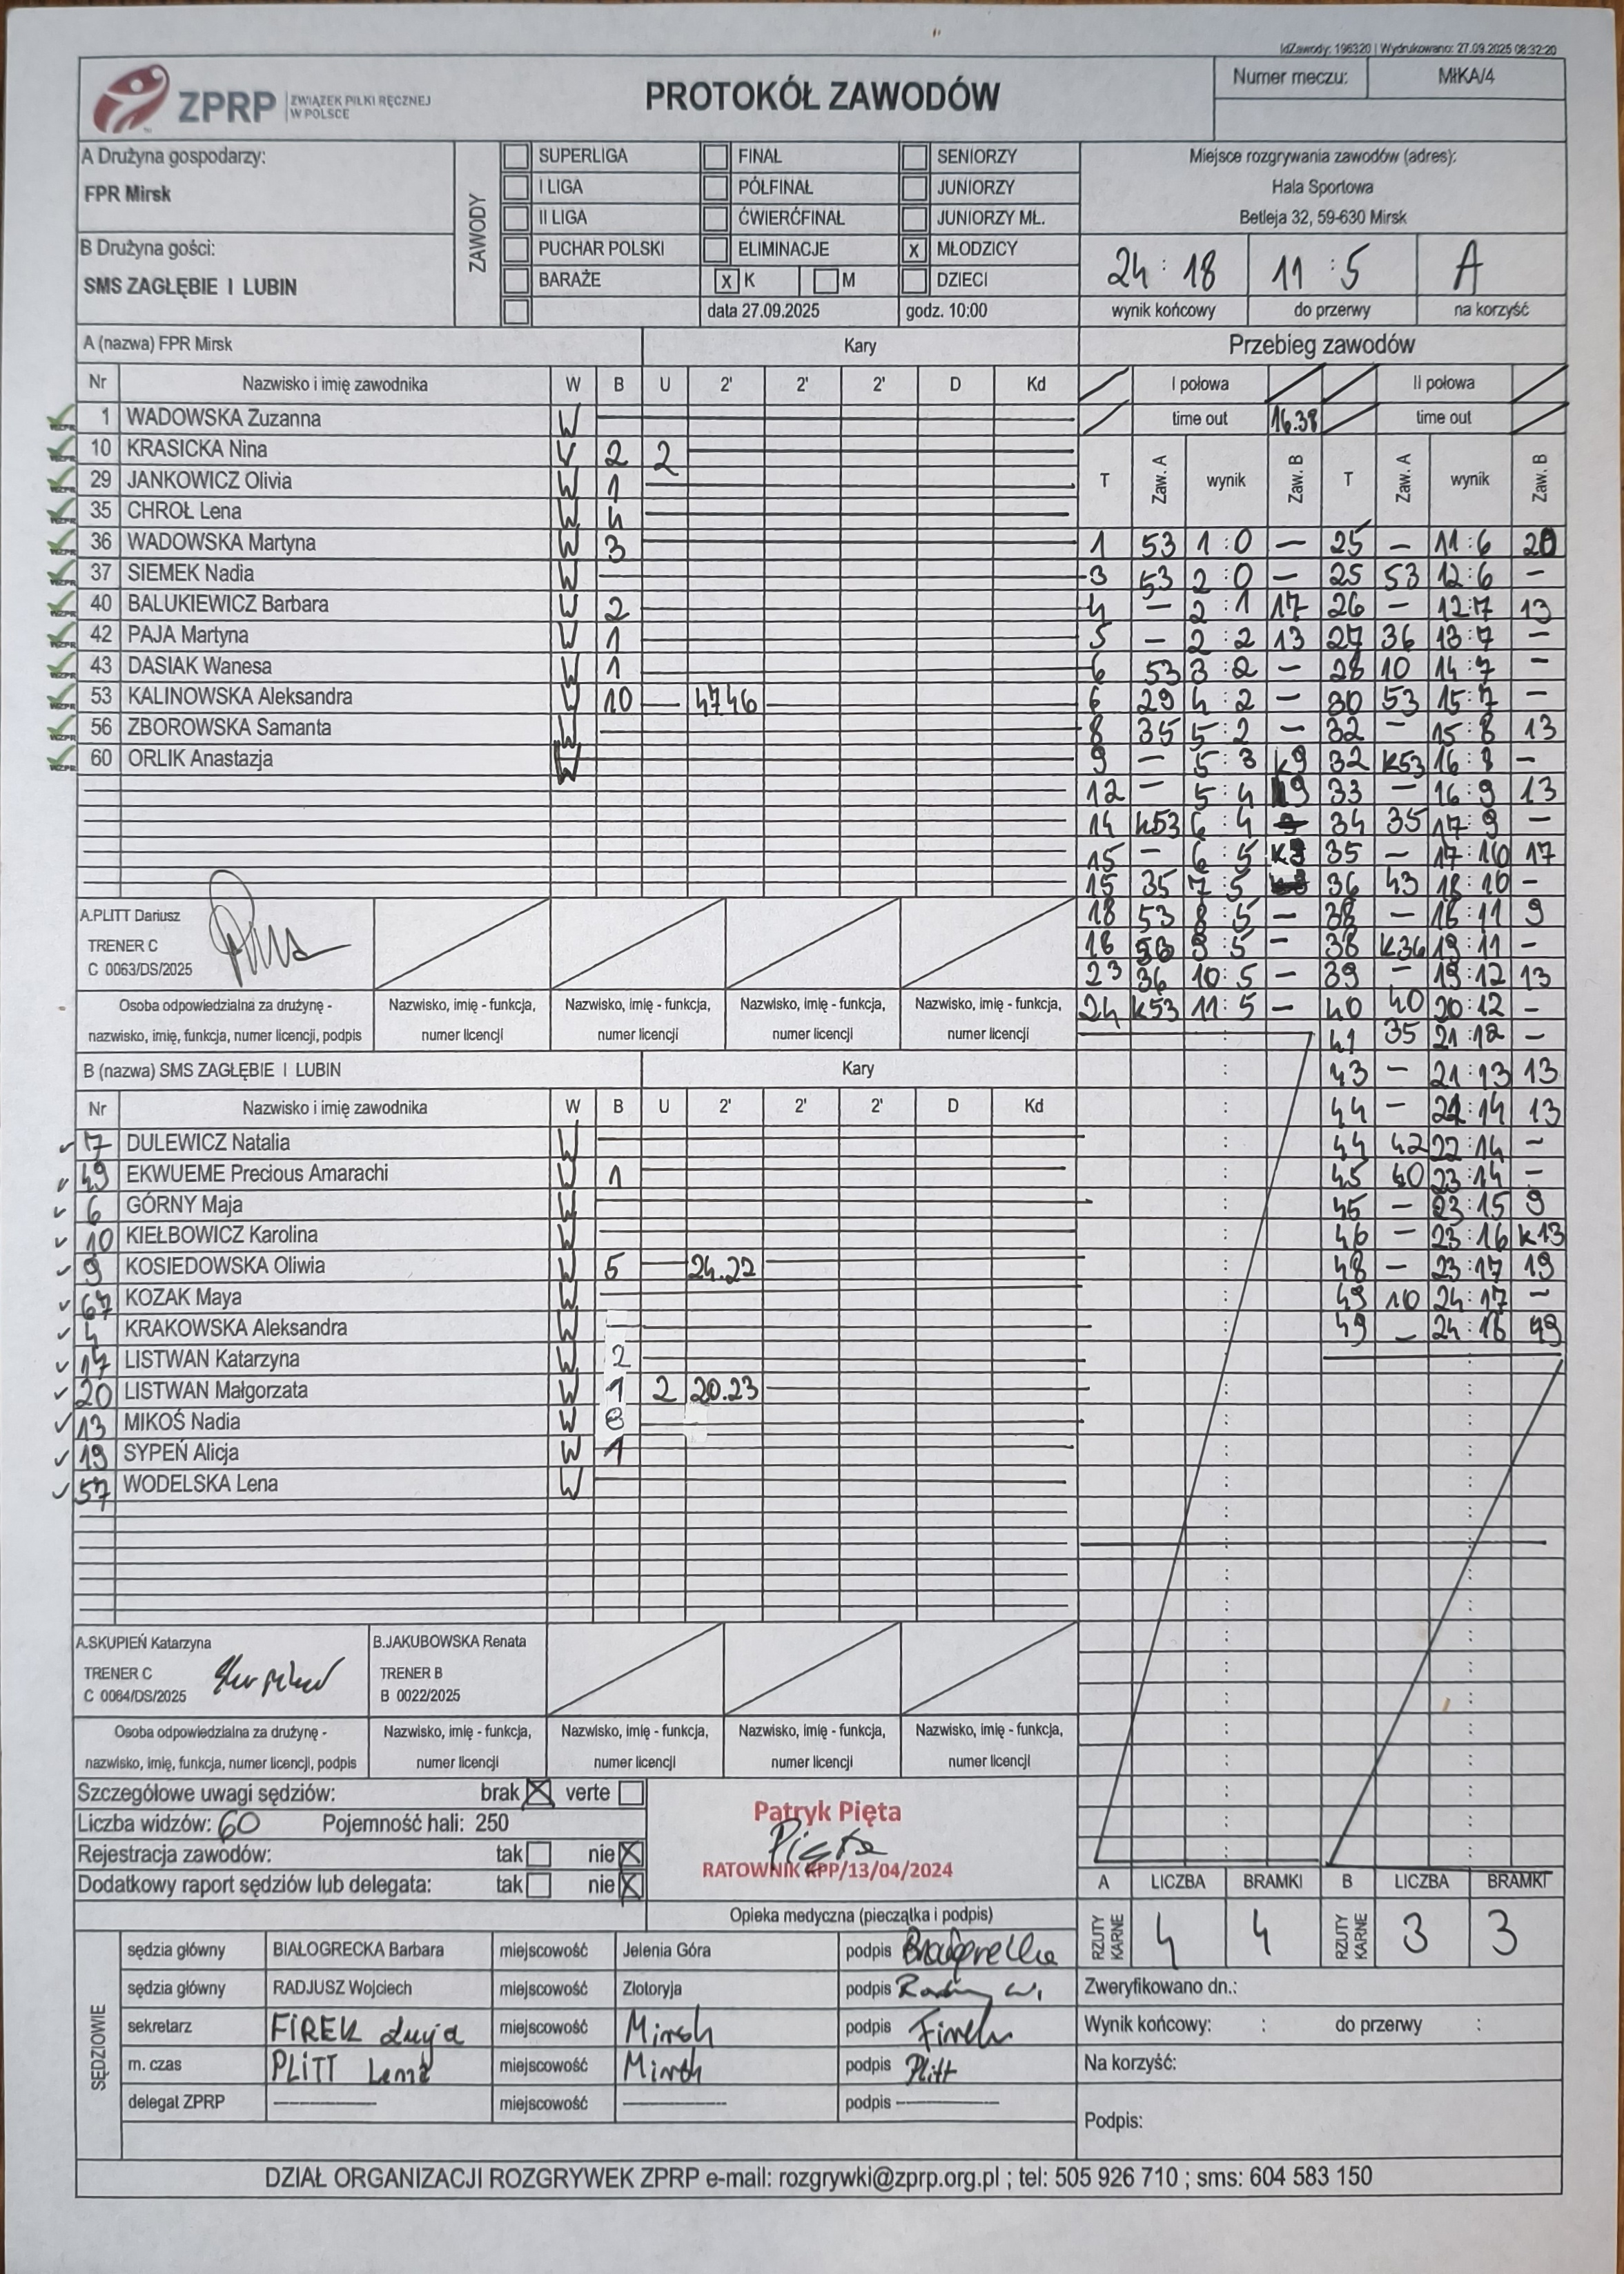 IdZawody: 196320 | Wydrukowano: 27.09.2025 08:32:20
ZPRP ZWIĄZEK PIŁKI RĘCZNEJ W POLSCE
PROTOKÓŁ ZAWODÓW
Numer meczu: MłKA/4
A Drużyna gospodarzy:
FPR Mirsk
B Drużyna gości:
SMS ZAGŁĘBIE I LUBIN
ZAWODY
SUPERLIGA FINAŁ SENIORZY
I LIGA PÓŁFINAŁ JUNIORZY
II LIGA ĆWIERĆFINAŁ JUNIORZY MŁ.
PUCHAR POLSKI ELIMINACJE x MŁODZICY
BARAŻE x K M DZIECI
data 27.09.2025 godz. 10:00
Miejsce rozgrywania zawodów (adres):
Hala Sportowa
Betleja 32, 59-630 Mirsk
24 : 18 11 : 5 A
wynik końcowy do przerwy na korzyść
A (nazwa) FPR Mirsk Kary
Nr Nazwisko i imię zawodnika W B U 2' 2' 2' D Kd
1 WADOWSKA Zuzanna W
10 KRASICKA Nina W 2 2
29 JANKOWICZ Olivia W 1
35 CHROŁ Lena W 4
36 WADOWSKA Martyna W 3
37 SIEMEK Nadia W
40 BALUKIEWICZ Barbara W 2
42 PAJA Martyna W 1
43 DASIAK Wanesa W 1
53 KALINOWSKA Aleksandra W 10 — 4746
56 ZBOROWSKA Samanta W
60 ORLIK Anastazja W
A.PLITT Dariusz
TRENER C
C 0063/DS/2025
Osoba odpowiedzialna za drużynę -
nazwisko, imię, funkcja, numer licencji, podpis
Nazwisko, imię - funkcja, Nazwisko, imię - funkcja, Nazwisko, imię - funkcja, Nazwisko, imię - funkcja,
numer licencji numer licencji numer licencji numer licencji
B (nazwa) SMS ZAGŁĘBIE I LUBIN Kary
Nr Nazwisko i imię zawodnika W B U 2' 2' 2' D Kd
7 DULEWICZ Natalia W
49 EKWUEME Precious Amarachi W 1
6 GÓRNY Maja W
10 KIEŁBOWICZ Karolina W
9 KOSIEDOWSKA Oliwia W 5 — 24.22
67 KOZAK Maya W
4 KRAKOWSKA Aleksandra W
17 LISTWAN Katarzyna W 2
20 LISTWAN Małgorzata W 1 2 20.23
13 MIKOŚ Nadia W 8
19 SYPEŃ Alicja W 1
57 WODELSKA Lena W
A.SKUPIEŃ Katarzyna
TRENER C
C 0064/DS/2025
B.JAKUBOWSKA Renata
TRENER B
B 0022/2025
Osoba odpowiedzialna za drużynę -
nazwisko, imię, funkcja, numer licencji, podpis
Nazwisko, imię - funkcja, Nazwisko, imię - funkcja, Nazwisko, imię - funkcja, Nazwisko, imię - funkcja,
numer licencji numer licencji numer licencji numer licencji
Przebieg zawodów
I połowa II połowa
time out 16.38 time out
T Zaw. A wynik Zaw. B T Zaw. A wynik Zaw. B
1 53 1:0 — 25 — 11:6 20
3 53 2:0 — 25 53 12:6 —
4 — 2:1 17 26 — 12:7 13
5 — 2:2 13 27 36 13:7 —
6 53 3:2 — 28 10 14:7 —
6 29 4:2 — 30 53 15:7 —
8 35 5:2 — 32 — 15:8 13
9 — 5:3 k9 32 k53 16:8 —
12 — 5:4 9 33 — 16:9 13
14 k53 6:4 34 35 17:9 —
15 — 6:5 k9 35 — 17:10 17
15 35 7:5 36 43 18:10 —
18 53 8:5 — 38 — 18:11 9
18 53 9:5 — 38 k36 19:11 —
23 36 10:5 — 39 — 19:12 13
24 k53 11:5 — 40 40 20:12 —
41 35 21:12 —
43 — 21:13 13
44 — 21:14 13
44 42 22:14 —
45 40 23:14 —
45 — 23:15 9
46 — 23:16 k13
48 — 23:17 19
49 10 24:17 —
49 — 24:18 49
Szczegółowe uwagi sędziów: brak X verte
Liczba widzów: 60 Pojemność hali: 250
Rejestracja zawodów: tak nie X
Dodatkowy raport sędziów lub delegata: tak nie X
Patryk Pięta
Pięta
RATOWNIK KPP/13/04/2024
Opieka medyczna (pieczątka i podpis)
A LICZBA BRAMKI B LICZBA BRAMKI
RZUTY KARNE 4 4 RZUTY KARNE 3 3
SĘDZIOWIE
sędzia główny BIAŁOGRECKA Barbara miejscowość Jelenia Góra podpis Białogrecka
sędzia główny RADJUSZ Wojciech miejscowość Złotoryja podpis
sekretarz FIREK Łucja miejscowość Mirsk podpis Firek
m. czas PLITT Lena miejscowość Mirsk podpis Plitt
delegat ZPRP — miejscowość — podpis —
Zweryfikowano dn.:
Wynik końcowy: : do przerwy :
Na korzyść:
Podpis:
DZIAŁ ORGANIZACJI ROZGRYWEK ZPRP e-mail: rozgrywki@zprp.org.pl ; tel: 505 926 710 ; sms: 604 583 150